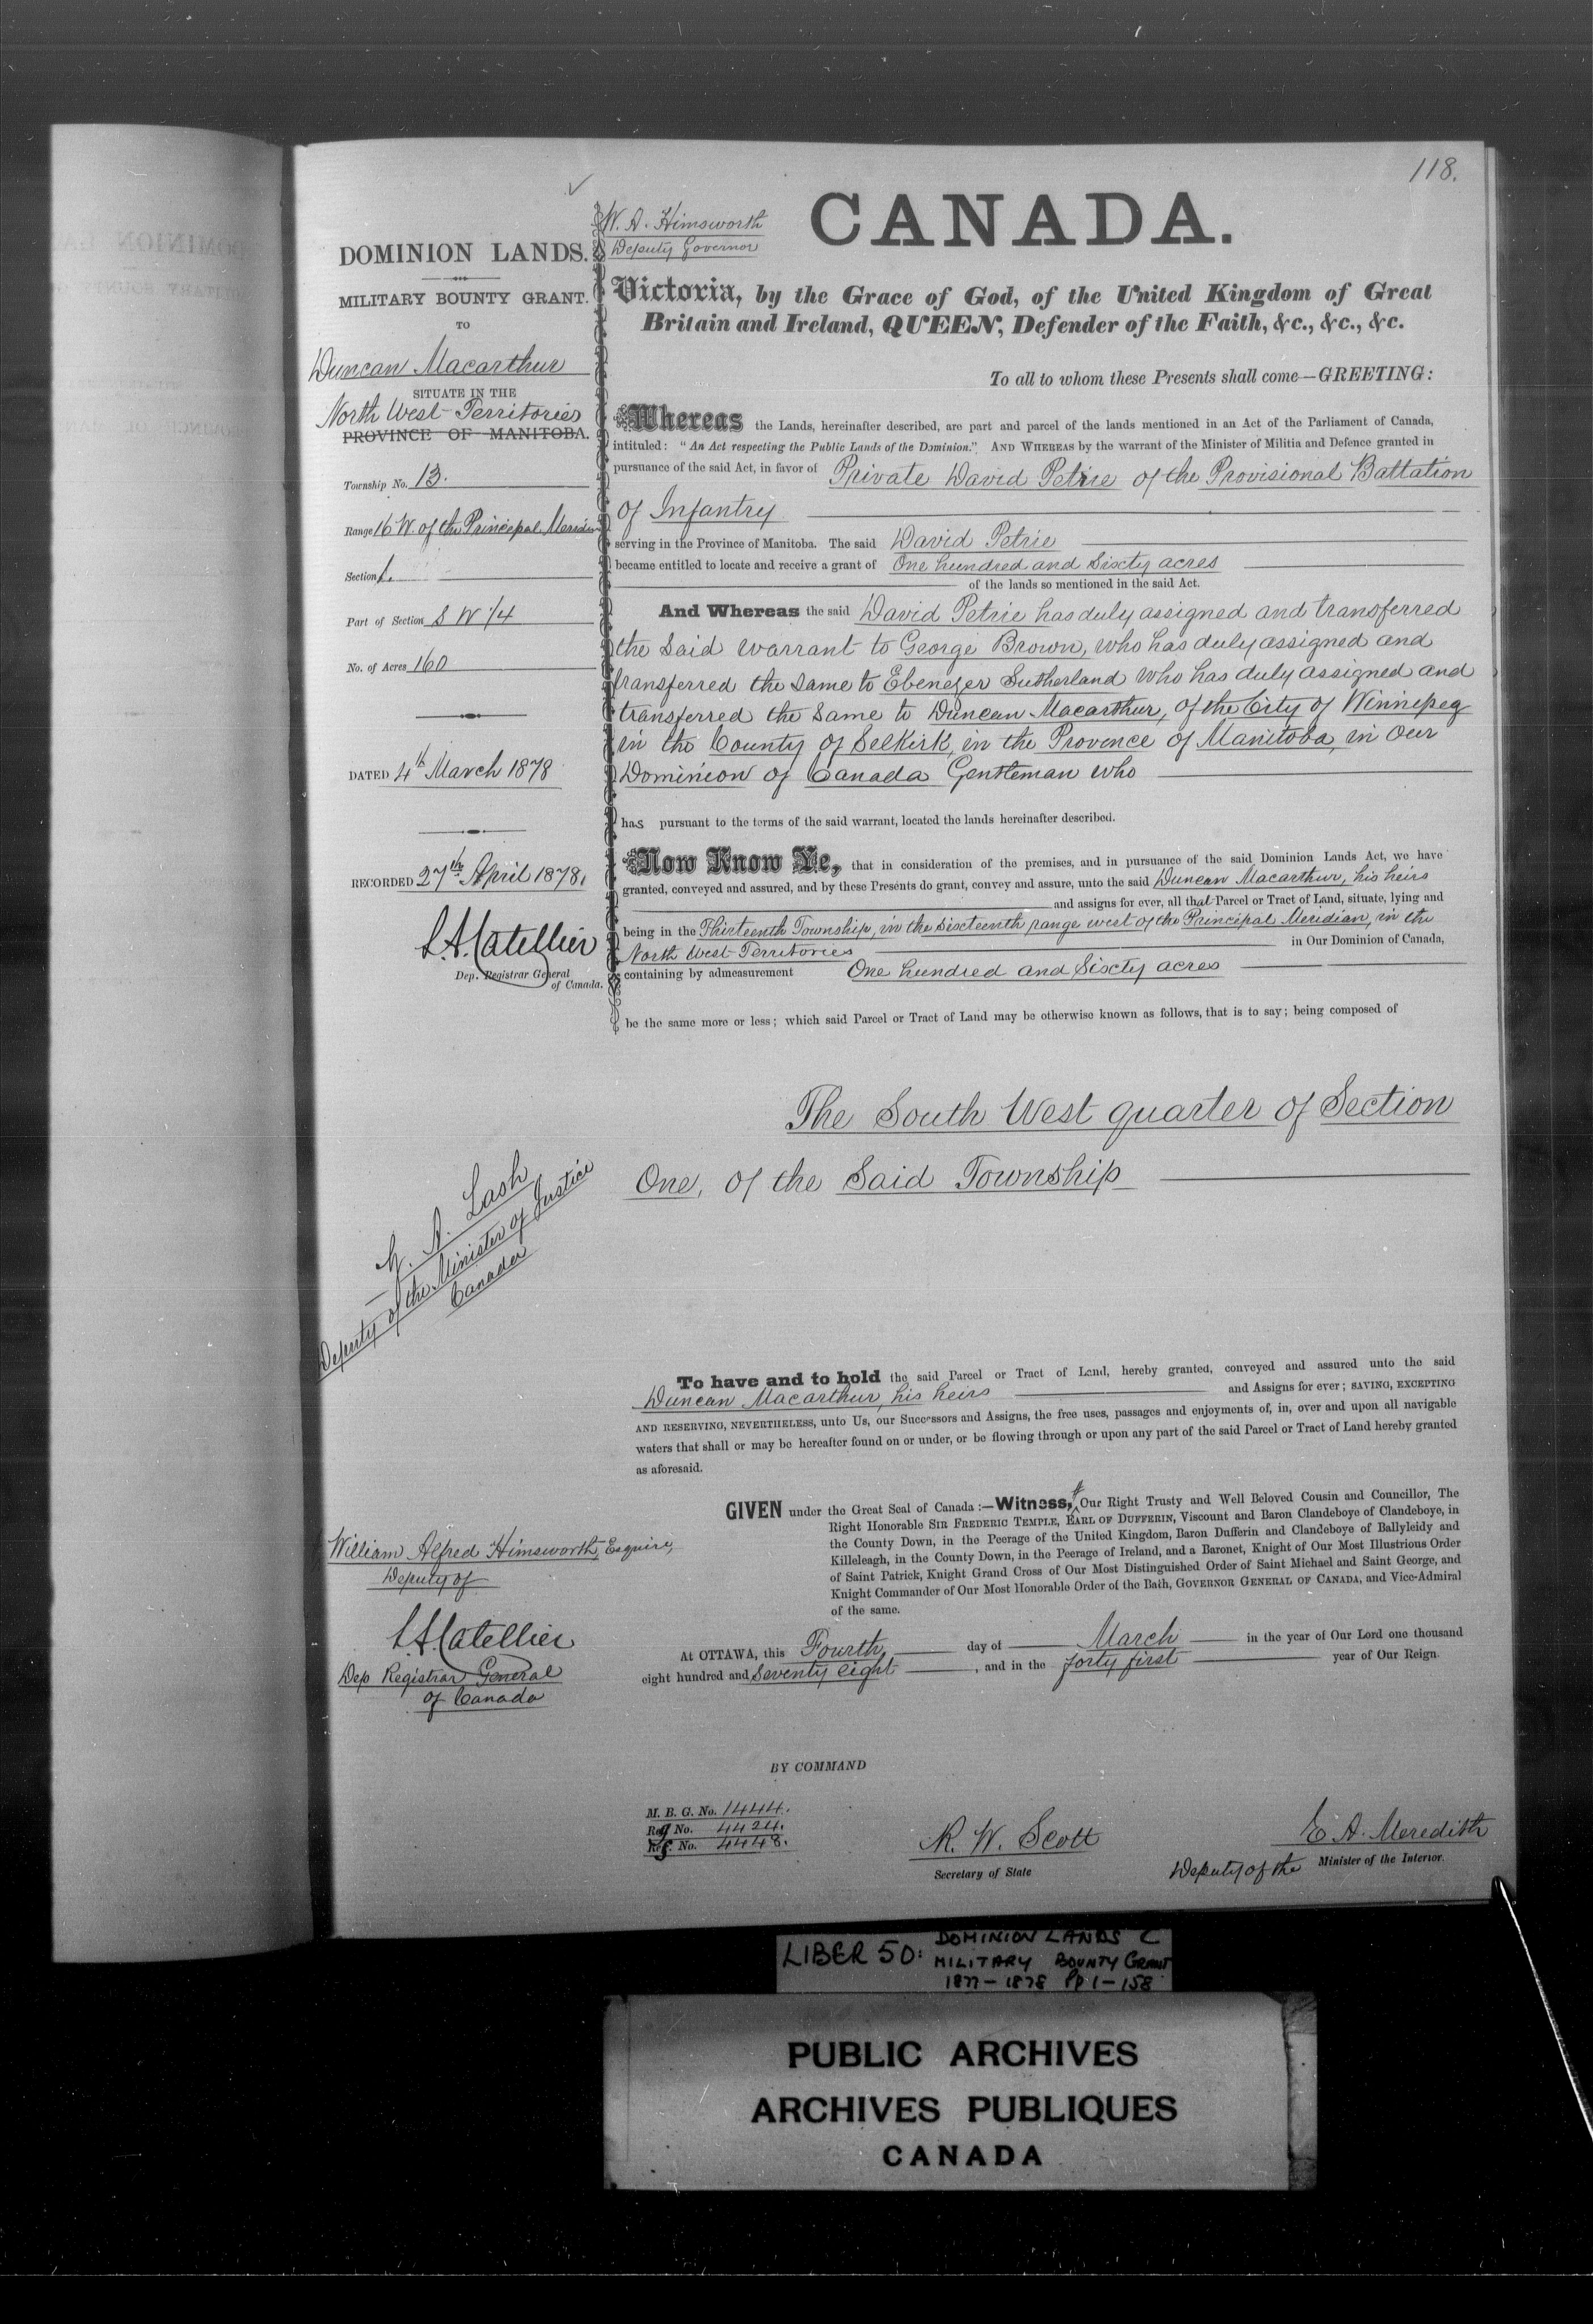 118.
W. A. Himsworth
Deputy Governor
CANADA.
DOMINION LANDS.
MILITARY BOUNTY GRANT.
TO
Duncan Macarthur
SITUATE IN THE
North West Territories
PROVINCE OF MANITOBA.
Township No. 13.
Range 16 W. of the Principal Meridian
Section 1.
Part of Section S W 1/4
No. of Acres 160
DATED 4th March 1878
RECORDED 27th April 1878.
L. A. Catellier
Dep. Registrar General
of Canada.
Victoria, by the Grace of God, of the United Kingdom of Great
Britain and Ireland, QUEEN, Defender of the Faith, &c., &c., &c.
To all to whom these Presents shall come—GREETING:
Whereas the Lands, hereinafter described, are part and parcel of the lands mentioned in an Act of the Parliament of Canada,
intituled: "An Act respecting the Public Lands of the Dominion." AND WHEREAS by the warrant of the Minister of Militia and Defence granted in
pursuance of the said Act, in favor of Private David Petrie of the Provisional Battation
of Infantry
serving in the Province of Manitoba. The said David Petrie
became entitled to locate and receive a grant of One hundred and Sixty acres
of the lands so mentioned in the said Act.
And Whereas the said David Petrie has duly assigned and transferred
the Said warrant to George Brown, who has duly assigned and
transferred the same to Ebenezer Sutherland who has duly assigned and
transferred the Same to Duncan Macarthur, of the City of Winnipeg
in the County of Selkirk, in the Provence of Manitoba, in Our
Dominion of Canada Gentleman who
has pursuant to the terms of the said warrant, located the lands hereinafter described.
Now Know Ye, that in consideration of the premises, and in pursuance of the said Dominion Lands Act, we have
granted, conveyed and assured, and by these Presents do grant, convey and assure, unto the said Duncan Macarthur, his heirs
and assigns for ever, all that Parcel or Tract of Land, situate, lying and
being in the Thirteenth Township, in the Sixteenth range west of the Principal Meridian, in the
North West Territories in Our Dominion of Canada,
containing by admeasurement One hundred and Sixty acres
be the same more or less; which said Parcel or Tract of Land may be otherwise known as follows, that is to say; being composed of
The South West quarter of Section
One, of the Said Township
Z. A. Lash
Deputy of the Minister of Justice
Canada
To have and to hold the said Parcel or Tract of Land, hereby granted, conveyed and assured unto the said
Duncan Macarthur, his heirs and Assigns for ever; SAVING, EXCEPTING
AND RESERVING, NEVERTHELESS, unto Us, our Successors and Assigns, the free uses, passages and enjoyments of, in, over and upon all navigable
waters that shall or may be hereafter found on or under, or be flowing through or upon any part of the said Parcel or Tract of Land hereby granted
as aforesaid.
GIVEN under the Great Seal of Canada:—Witness, Our Right Trusty and Well Beloved Cousin and Councillor, The
Right Honorable SIR FREDERIC TEMPLE, EARL OF DUFFERIN, Viscount and Baron Clandeboye of Clandeboye, in
the County Down, in the Peerage of the United Kingdom, Baron Dufferin and Clandeboye of Ballyleidy and
Killeleagh, in the County Down, in the Peerage of Ireland, and a Baronet, Knight of Our Most Illustrious Order
of Saint Patrick, Knight Grand Cross of Our Most Distinguished Order of Saint Michael and Saint George, and
Knight Commander of Our Most Honorable Order of the Bath, GOVERNOR GENERAL OF CANADA, and Vice-Admiral
of the same.
William Alfred Himsworth, Esquire,
Deputy of
L. A. Catellier
Dep Registrar General
of Canada
At OTTAWA, this Fourth day of March in the year of Our Lord one thousand
eight hundred and Seventy eight, and in the forty first year of Our Reign.
BY COMMAND
M. B. G. No. 1444.
Ref No. 4424.
Ref. No. 4448.
R. W. Scott
Secretary of State
E A. Meredith
Deputy of the Minister of the Interior.
LIBER 50: DOMINION LANDS C
MILITARY BOUNTY GRANT
1877-1878 Pp 1-158
PUBLIC ARCHIVES
ARCHIVES PUBLIQUES
CANADA